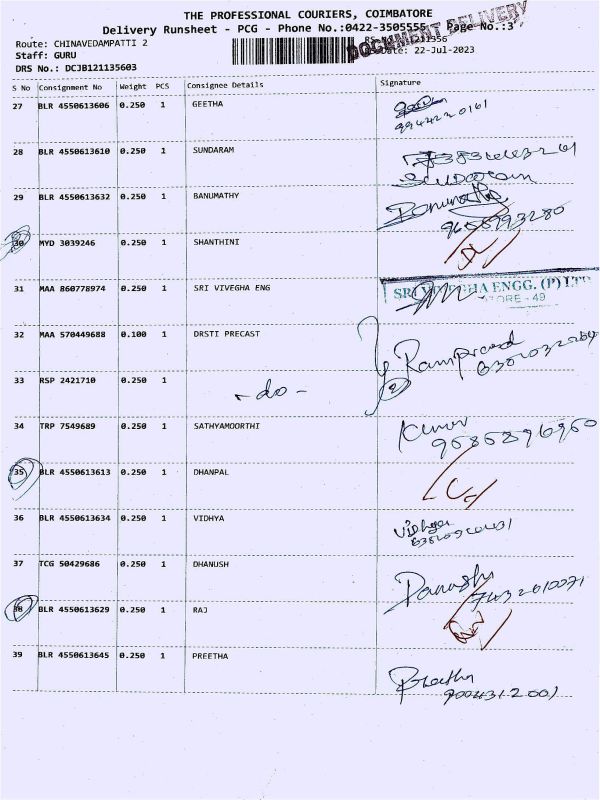 THE PROFESSIONAL COURIERS, COIMBATORE
Delivery Runsheet - PCG - Phone No.:0422-3505555 Page No.:3
DOCUMENT DELIVERY
Route: CHINAVEDAMPATTI 2
Staff: GURU 22-Jul-2023
DRS No.: DCJB121135603
S No Consignment No Weight PCS Consignee Details Signature
27 BLR 4550613606 0.250 1 GEETHA
9944220161
28 BLR 4550613610 0.250 1 SUNDARAM
Sundaram
29 BLR 4550613632 0.250 1 BANUMATHY Banumathy
30 MYD 3039246 0.250 1 SHANTHINI
31 MAA 860778974 0.250 1 SRI VIVEGHA ENG
ENGG. (P) LTD
ORE - 49
32 MAA 570449688 0.100 1 DRSTI PRECAST Ramprasad
33 RSP 2421710 0.250 1 - do - 2
34 TRP 7549689 0.250 1 SATHYAMOORTHI Kumar
9585896950
35 BLR 4550613613 0.250 1 DHANPAL
36 BLR 4550613634 0.250 1 VIDHYA Vidhya
37 TCG 50429686 0.250 1 DHANUSH Danush
7432610071
38 BLR 4550613629 0.250 1 RAJ
39 BLR 4550613645 0.250 1 PREETHA Preetha
9004312001